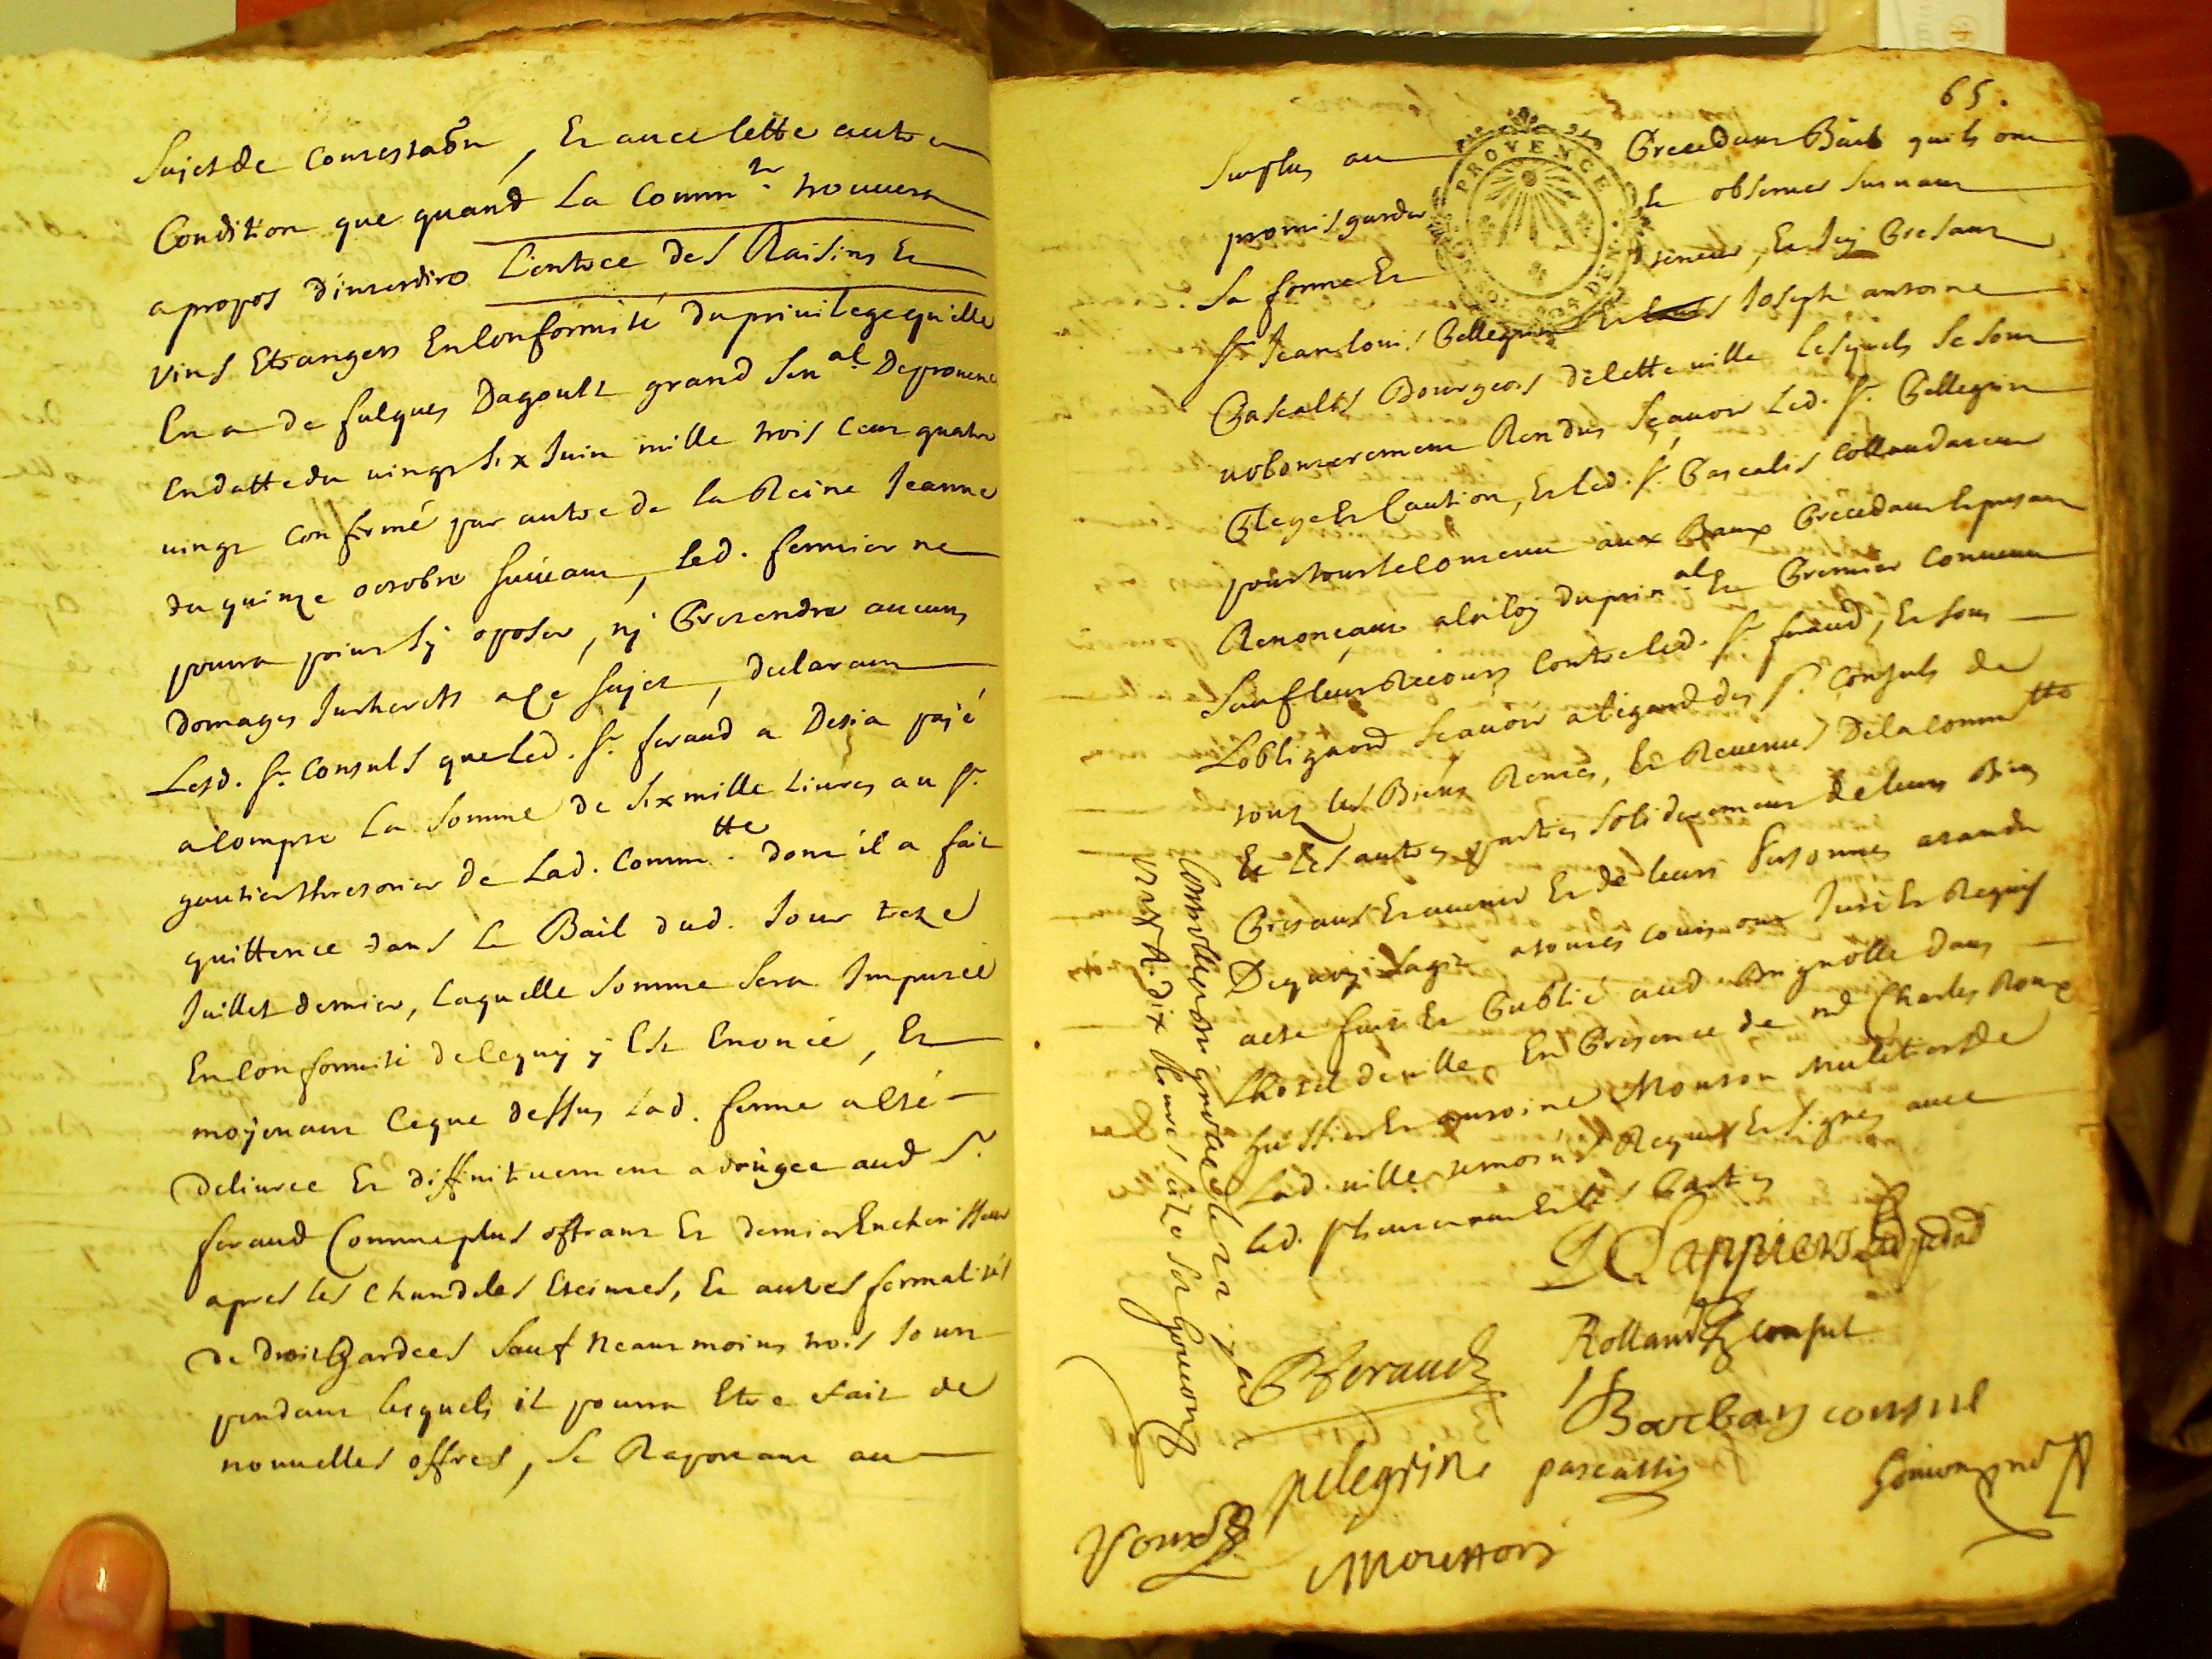 Sujet de Contestaõn, Et auec Cette autre
Condition que quand La Comm.te trouuera
a propos d'interdire L'entrée des Raisins Et
vins Etrangers En Conformité du priuilege qu'elle
En a de fulques Dagoult grand Sen.al De prouence
En datte du uingt Six Juin mille trois Cent quatre
uingt Confirmé par autre de la Reine Jeanne
du quinze octobre Suiuant, Led. fermier ne
pourra point S'y oposer, ny Pretendre aucuns
domages Interets a Ce Sujet, declarant
Lesd. Sr. Consuls que Led. Sr. feraud a Desia payé
a Compte La Somme de Six mille Liures au Sr.
gautier thresorier de Lad. Comm.tte dont il a fait
quittence dans Le Bail dud. Jour treze
Juillet dernier, Laquelle Somme Sera Imputée
En Conformité de Ce quy y Est Enoncé, Et
moyenant Ce que dessus Lad. ferme a Esté
deliurée Et diffinituement adiugée aud Sr.
feraud Comme plus offrant Et dernier Encherisseur
apres les Chandeles Eteintes, Et autres formalités
de droit Gardées Sauf neantmoins trois Jours
pendant lesquels il pourra Etre fait de
nouuelles offres, Se Raportant au
65.
Surplus au Precedant Bail quils ont
promis garder Et obseruer Suiuant
Sa forme Et teneur, Et Icy Presant
Sr. Jean Louis Pellegrin Et Joseph antoine
Pascallis Bourgeois de Cette uille Lesquels Se Sont
uolontairement Rendus Sçauoir Led. Sr. Pellegrin
Plege Et Caution, Et Led. Sr. Pascalis Collaudateur
pour tout le Contenu aux Baux Precedant Et presant
Renonçant a la loy du prin.al Et Premier Conuenu
Sauf leur Recours Contre Led. Sr. feraud, Et Sous
L'obligaõn Sçauoir a l'egard des Srs. Consuls de
tous les Biens Rentes, Et Reuenus De la Comm.tte
Et Les autres parties Solidairement de leurs Biens
Presants Et auenir Et de leurs Personnes atandu
De quoy S'agit a toutes Cours ont Juré Et Requis
acte fait Et Publié aud Brignolle dans
L'hotel de uille En Presence de me Charles Roux
huissier Et antoine Mouton muletier de
Lad. uille temoins Requis Et Signés auec
Led. Sr. Et Les Parties
Rolland Consul
Barbary consul
Feraud
pelegrin pascallis
Roux
Moutton
Controllé a Brignolle Le